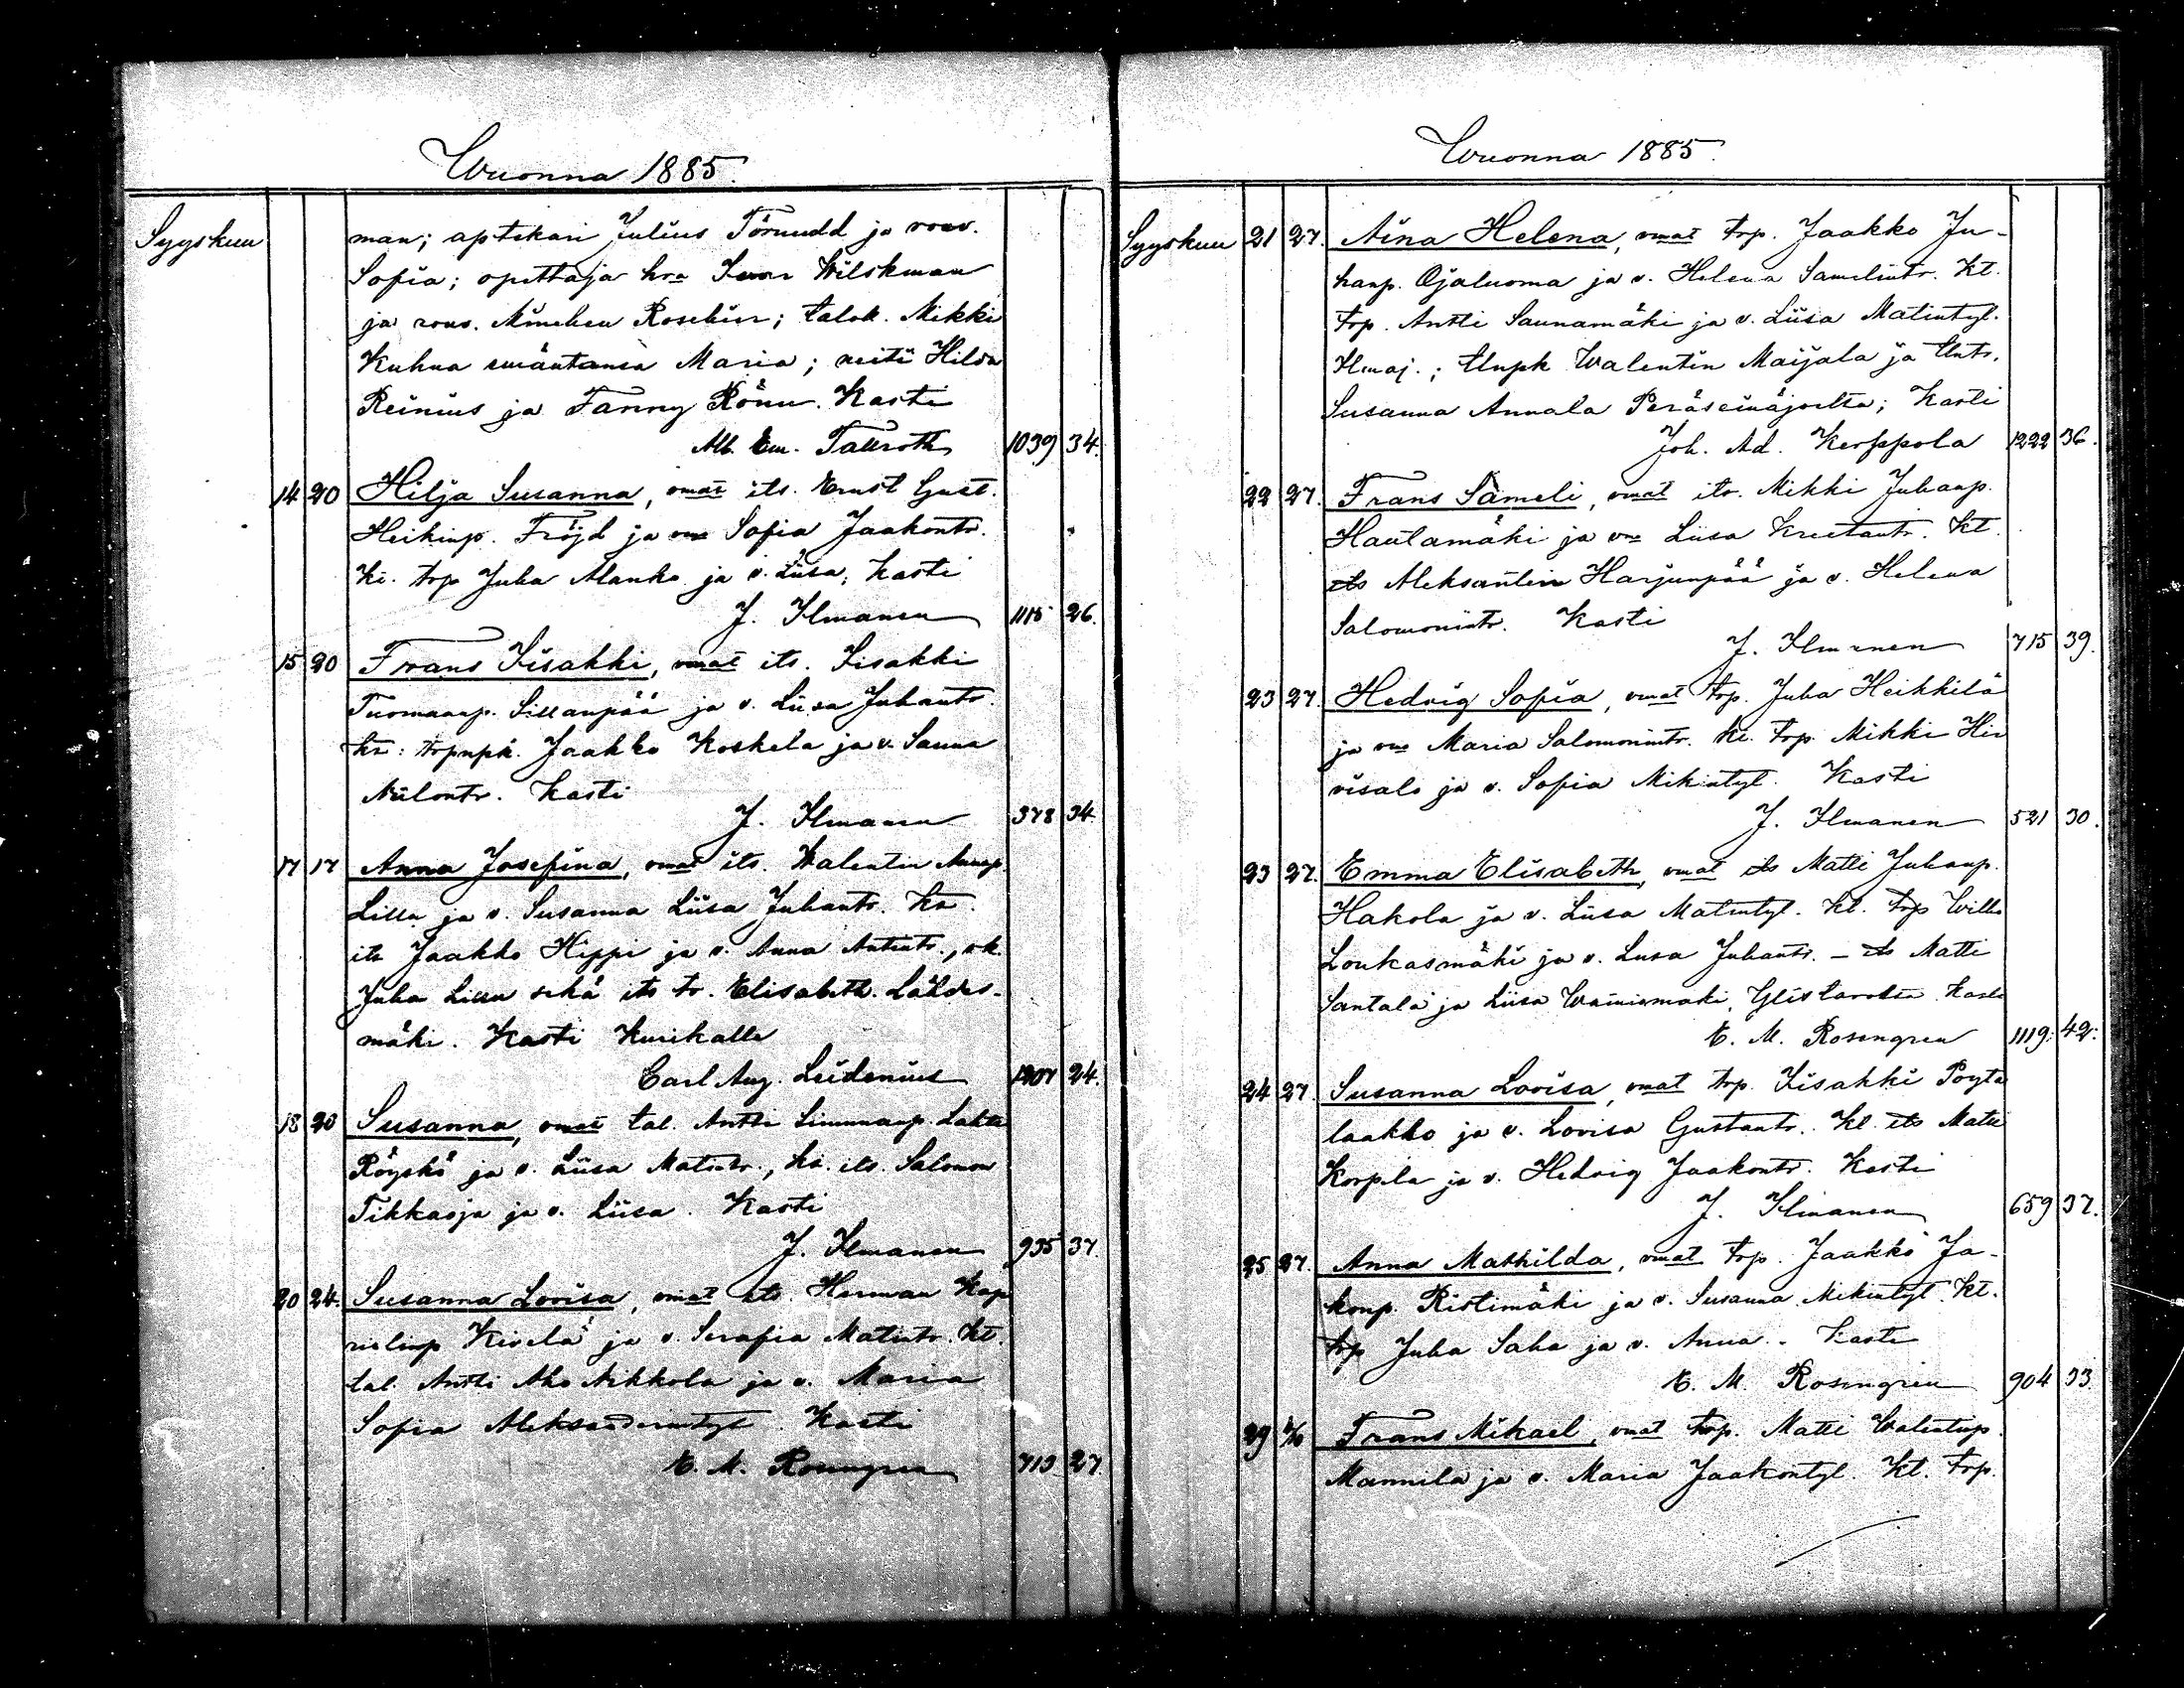 Wuonna 1885.
Syyskuu
man; aptekari Julius Törnudd ja rouv.
Sofia; opettaja hra Wilskman
ja rouv. Rosehier; talok. Mikki
Kuhna emäntänsä Maria; neiti Hilda
Reinius ja Fanny Rönn. Kasti
Alb. Em. Tallroth 1039 34.
14 20 Hilja Susanna, omat its. Ernst Gust.
Heikinp. Fröjd ja vmo Sofia Jaakontr.
Ki. trp Juha Alanko ja v. Liisa; kasti
J. Ilmanen 1115 26.
15 20 Frans Iisakki, omat its. Iisakki
Tuomaanp. Sillanpää ja v. Liisa Juhantr.
kt: trpnpk. Jaakko Koskela ja v. Sanna
Niilontr. Kasti
J. Ilmanen 378 34.
17 17 Anna Josefina, omat its. Walentin
Lilla ja v. Susanna Liisa Juhantr. Kt.
its Jaakko Hippi ja v. Anna Antintr., ok.
Juha Lilla sekä its tr. Elisabeth. Lähdes-
mäki. Kasti Kurikalla
Carl Aug. Leidenius 1207 24.
18 20 Susanna, omat tal. Antti Simunanp. Lahti
Röyskö ja v. Liisa Matintr., kt. its. Salomon
Tikkaoja ja v. Liisa. Kasti
J. Ilmanen 935 37.
20 24. Susanna Lovisa, omat its. Herman Kap
rielinp Kivelä ja v. Serafia Matintr. Kt.
tal. Antti Aho Mikkola ja v. Maria
Sofia Aleksanderintyt. Kasti
E. M. Rosengren 713 27
Wuonna 1885.
Syyskuu 21 27. Aina Helena, omat trp. Jaakko Ju-
hanp. Ojaluoma ja v. Helena Samelintr. Kt.
trp. Antti Saunamäki ja v. Liisa Matintyt.
Ilmaj.; tlnpk Walentin Maijala ja tlntr.
Susanna Annala Peräseinäjoelta; Kasti
Joh. Ad. Kerppola 1222 36.
22 27. Frans Sameli, omat its. Mikki Juhanp.
Hautamäki ja vmo Liisa Kreetantr. Kt.
its Aleksanteri Harjunpää ja v. Helena
Salomonintr. Kasti
J. Ilmanen 715 39.
23 27. Hedvig Sofia, omat trp. Juha Heikkilä
ja vmo Maria Salomonintr. Kt. trp. Mikki Hir
visalo ja v. Sofia Mikintyt. Kasti
J. Ilmanen 521 30.
23 27. Emma Elisabeth, omat its Matti Juhanp.
Hakola ja v. Liisa Matintyt. Kt. trp Wille
Loukasmäki ja v. Liisa Juhantr. - its Matti
Santala ja Liisa Wainiomäki, Ylistarosta. Kasti
E. M. Rosengren 1119. 42.
24 27. Susanna Lovisa, omat trp. Iisakki Pöytä
laakko ja v. Lovisa Gustantr. Kt. its Matti
Korpela ja v. Hedvig Jaakontr. Kasti
J. Ilmanen 659 37.
25 27. Anna Mathilda, omat trp. Jaakko Ja-
konp. Ristimäki ja v. Susanna Mikintyt. Kt.
trp Juha Saha ja v. Anna. Kasti
E. M. Rosengren 904 33.
29 Frans Mikael, omat trp. Matti Walentinp.
Mannila ja v. Maria Jaakontyt. Kt. trp.